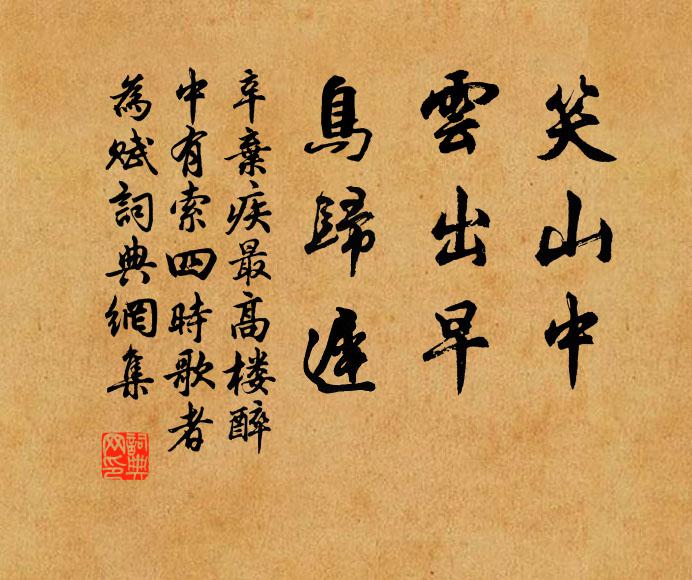 笑山中
雲出早
鳥歸遲
辛棄疾最高楼醉
中有索四時歌者
為賦詞典網集
詞典网印